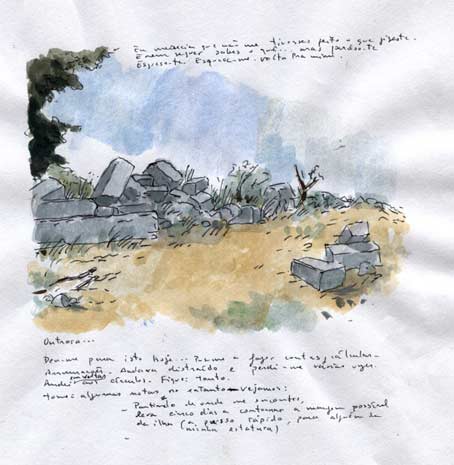 Eu merecia que não me tivesses feito o que fizeste.
E nem sequer sabes o quê... mas perdoo-te
Espero-te. Volta pra mim.
Outrora...
Deu-me para isto hoje... Pus-me a fazer contas, cálculos.
Andava distraído e perdi-me várias vezes.
Andei em voltas círculos. Fiquei tonto.
Tomei algumas notas no entanto. Vejamos:
- Partindo de onde me encontro,
leva cinco dias a contornar a margem possível
da ilha (a passo rápido, para alguém da
minha estatura)
-